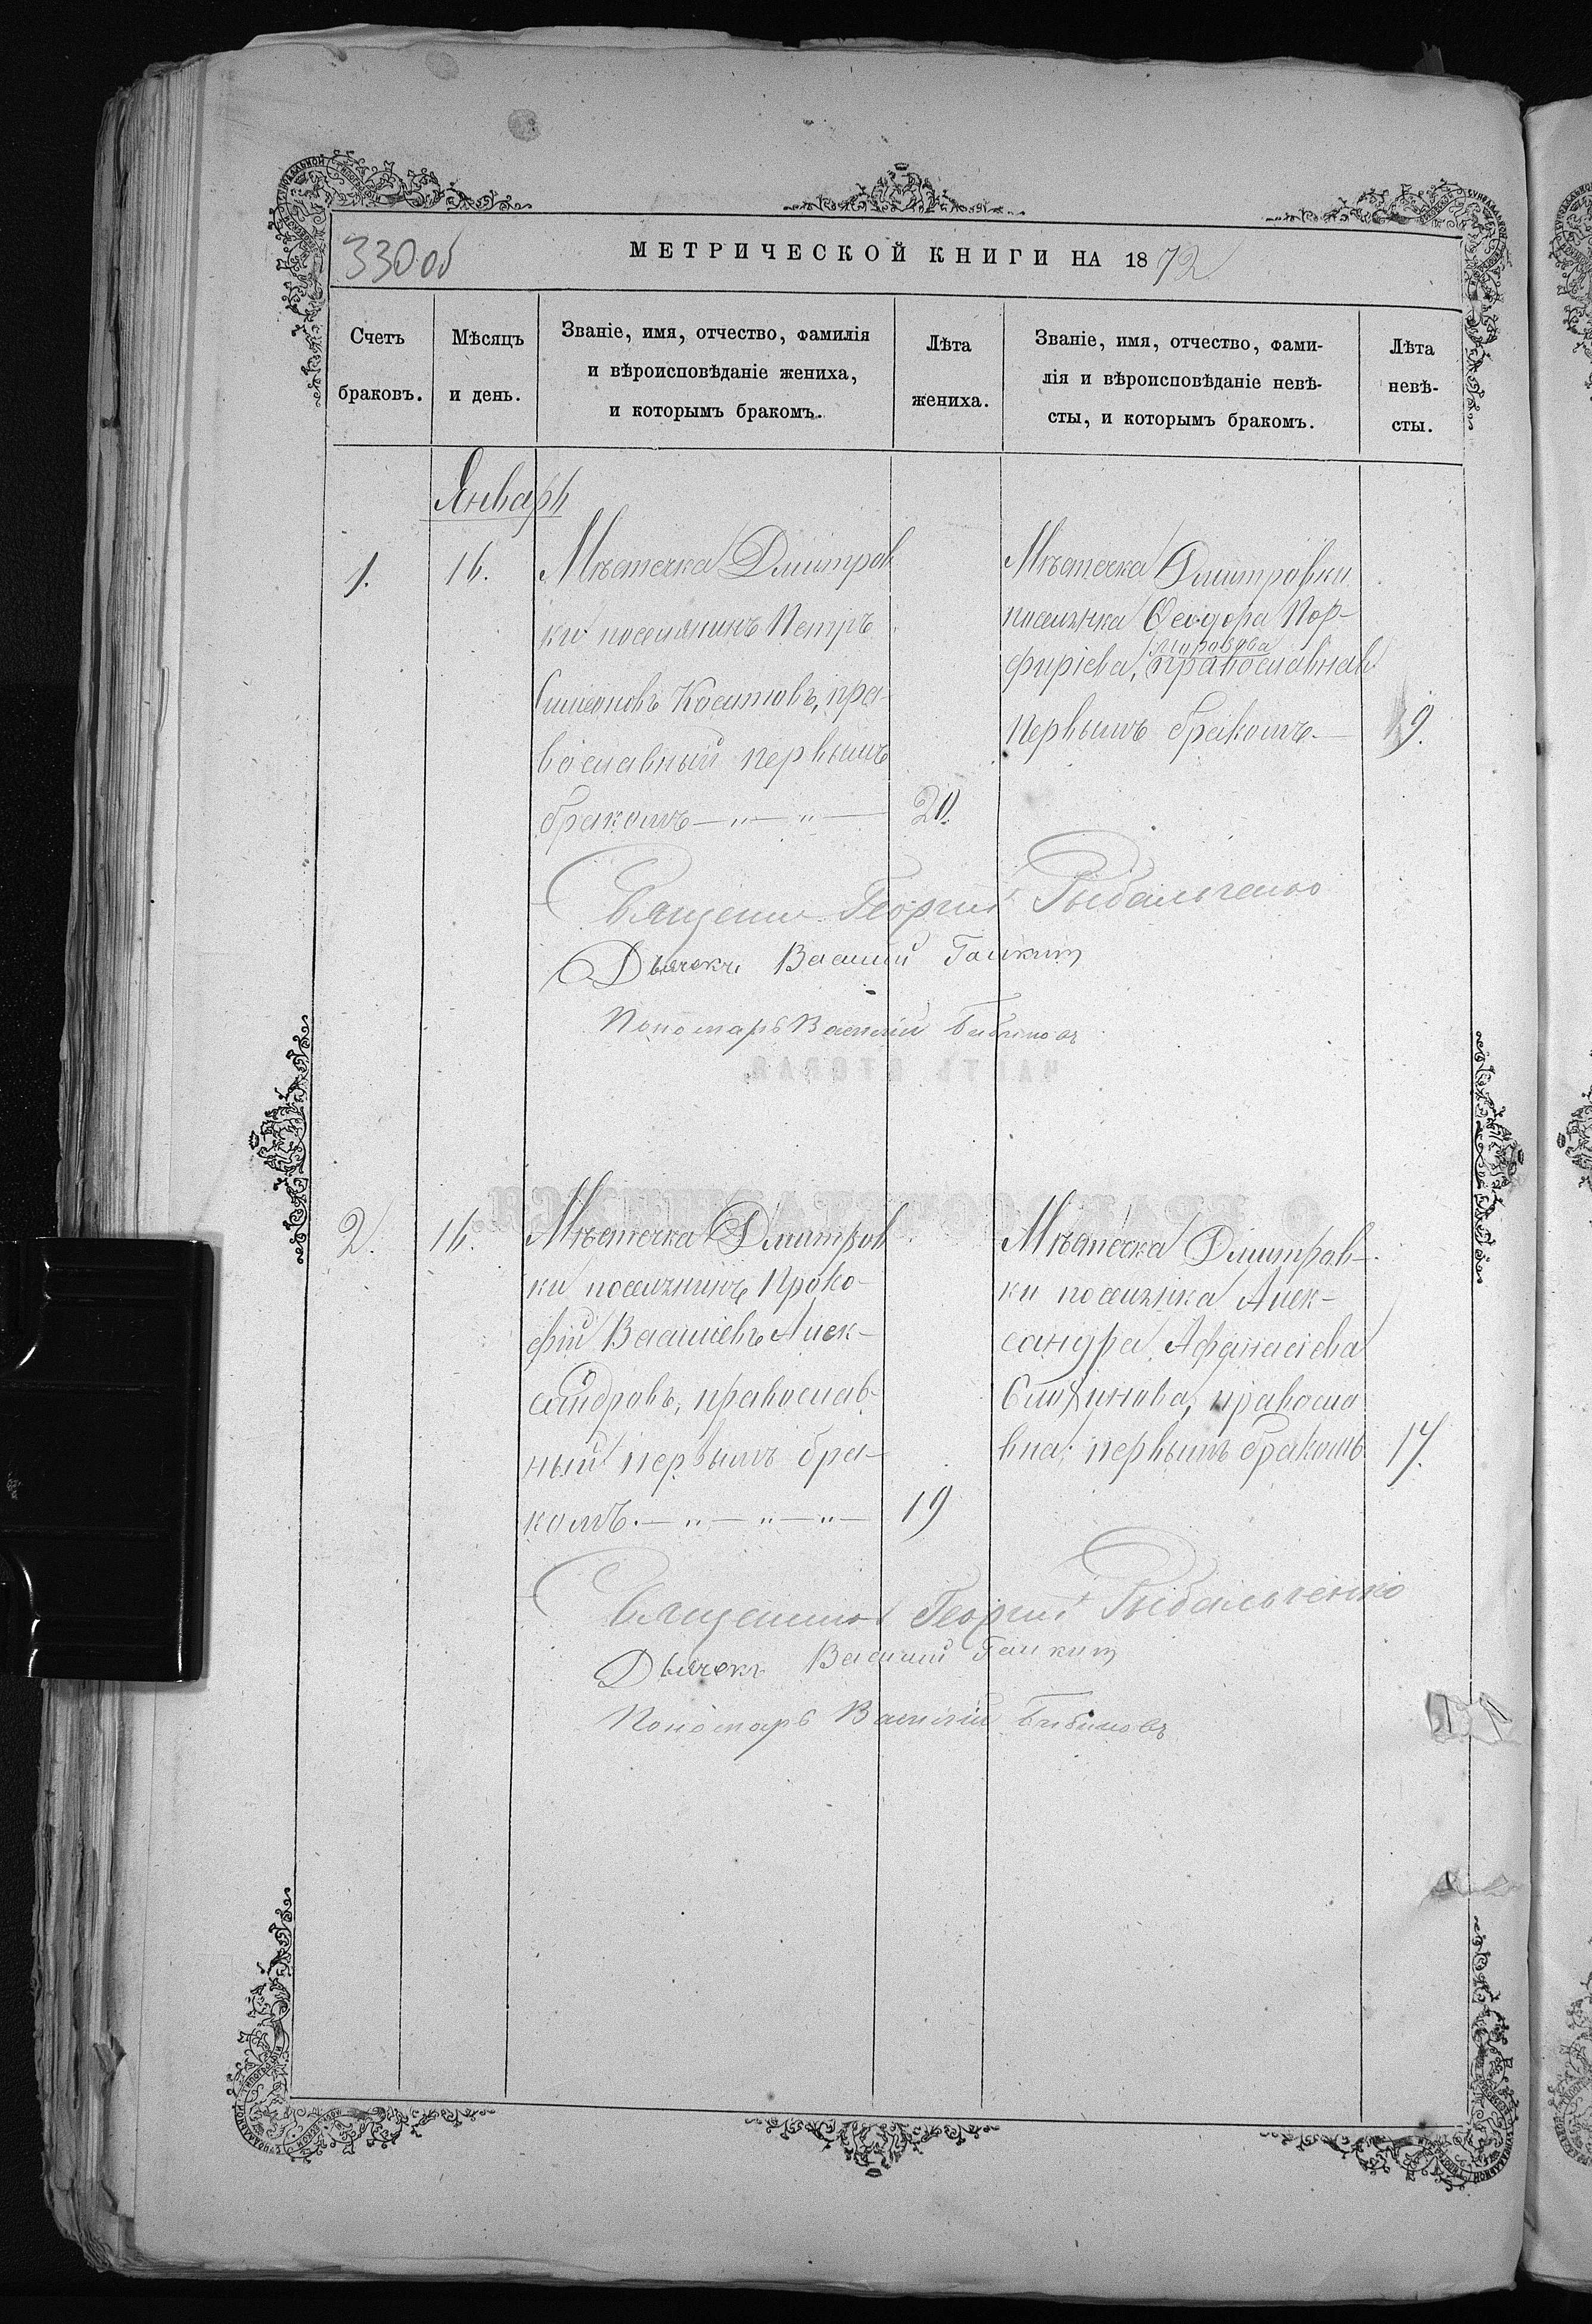 330 об
МЕТРИЧЕСКОЙ КНИГИ НА 1872
Счетъ браковъ.
Мѣсяцъ и день.
Званіе, имя, отчество, фамилія
и вѣроисповѣданіе жениха,
и которымъ бракомъ.
Лѣта жениха.
Званіе, имя, отчество, фами-
лія и вѣроисповѣданіе невѣ-
сты, и которымъ бракомъ.
Лѣта невѣ-
сты.
Январь
1.
16.
Мѣстечка Дмитров
ки поселянинъ Петръ
Симеоновъ пра-
вославный первымъ
бракомъ
20.
Мѣстечка Дмитровки
поселянка Ѳеодора Пор-
фиріева, православная
первымъ бракомъ.
19.
Священник Георгій Рыбальченко
Дьячекъ Василій
Пономарь Василій
2.
16.
Мѣстечка Дмитров
ки поселянинъ Проко-
фій Василіевъ Алек-
сандровъ, православ-
ный первымъ бра-
комъ.
19
Мѣстечка Дмитров-
ки поселянка Алек-
сандра Афанасіева
правосла
вна; первымъ бракомъ
17.
Священник Георгій Рыбальченко
Дьячекъ Василій
Пономарь Василій